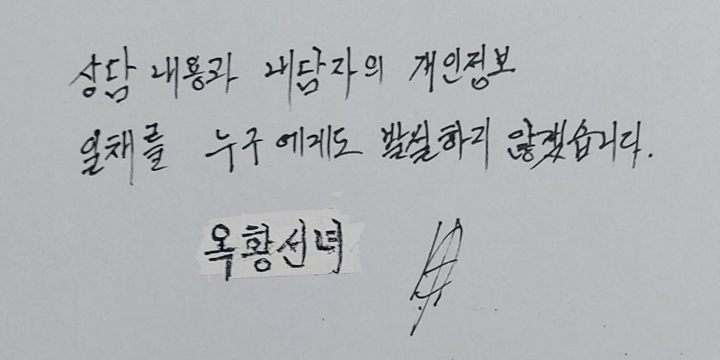 상담 내용과 내담자의 개인정보
일채를 누구에게도 발설하지 않겠습니다.
옥황선녀